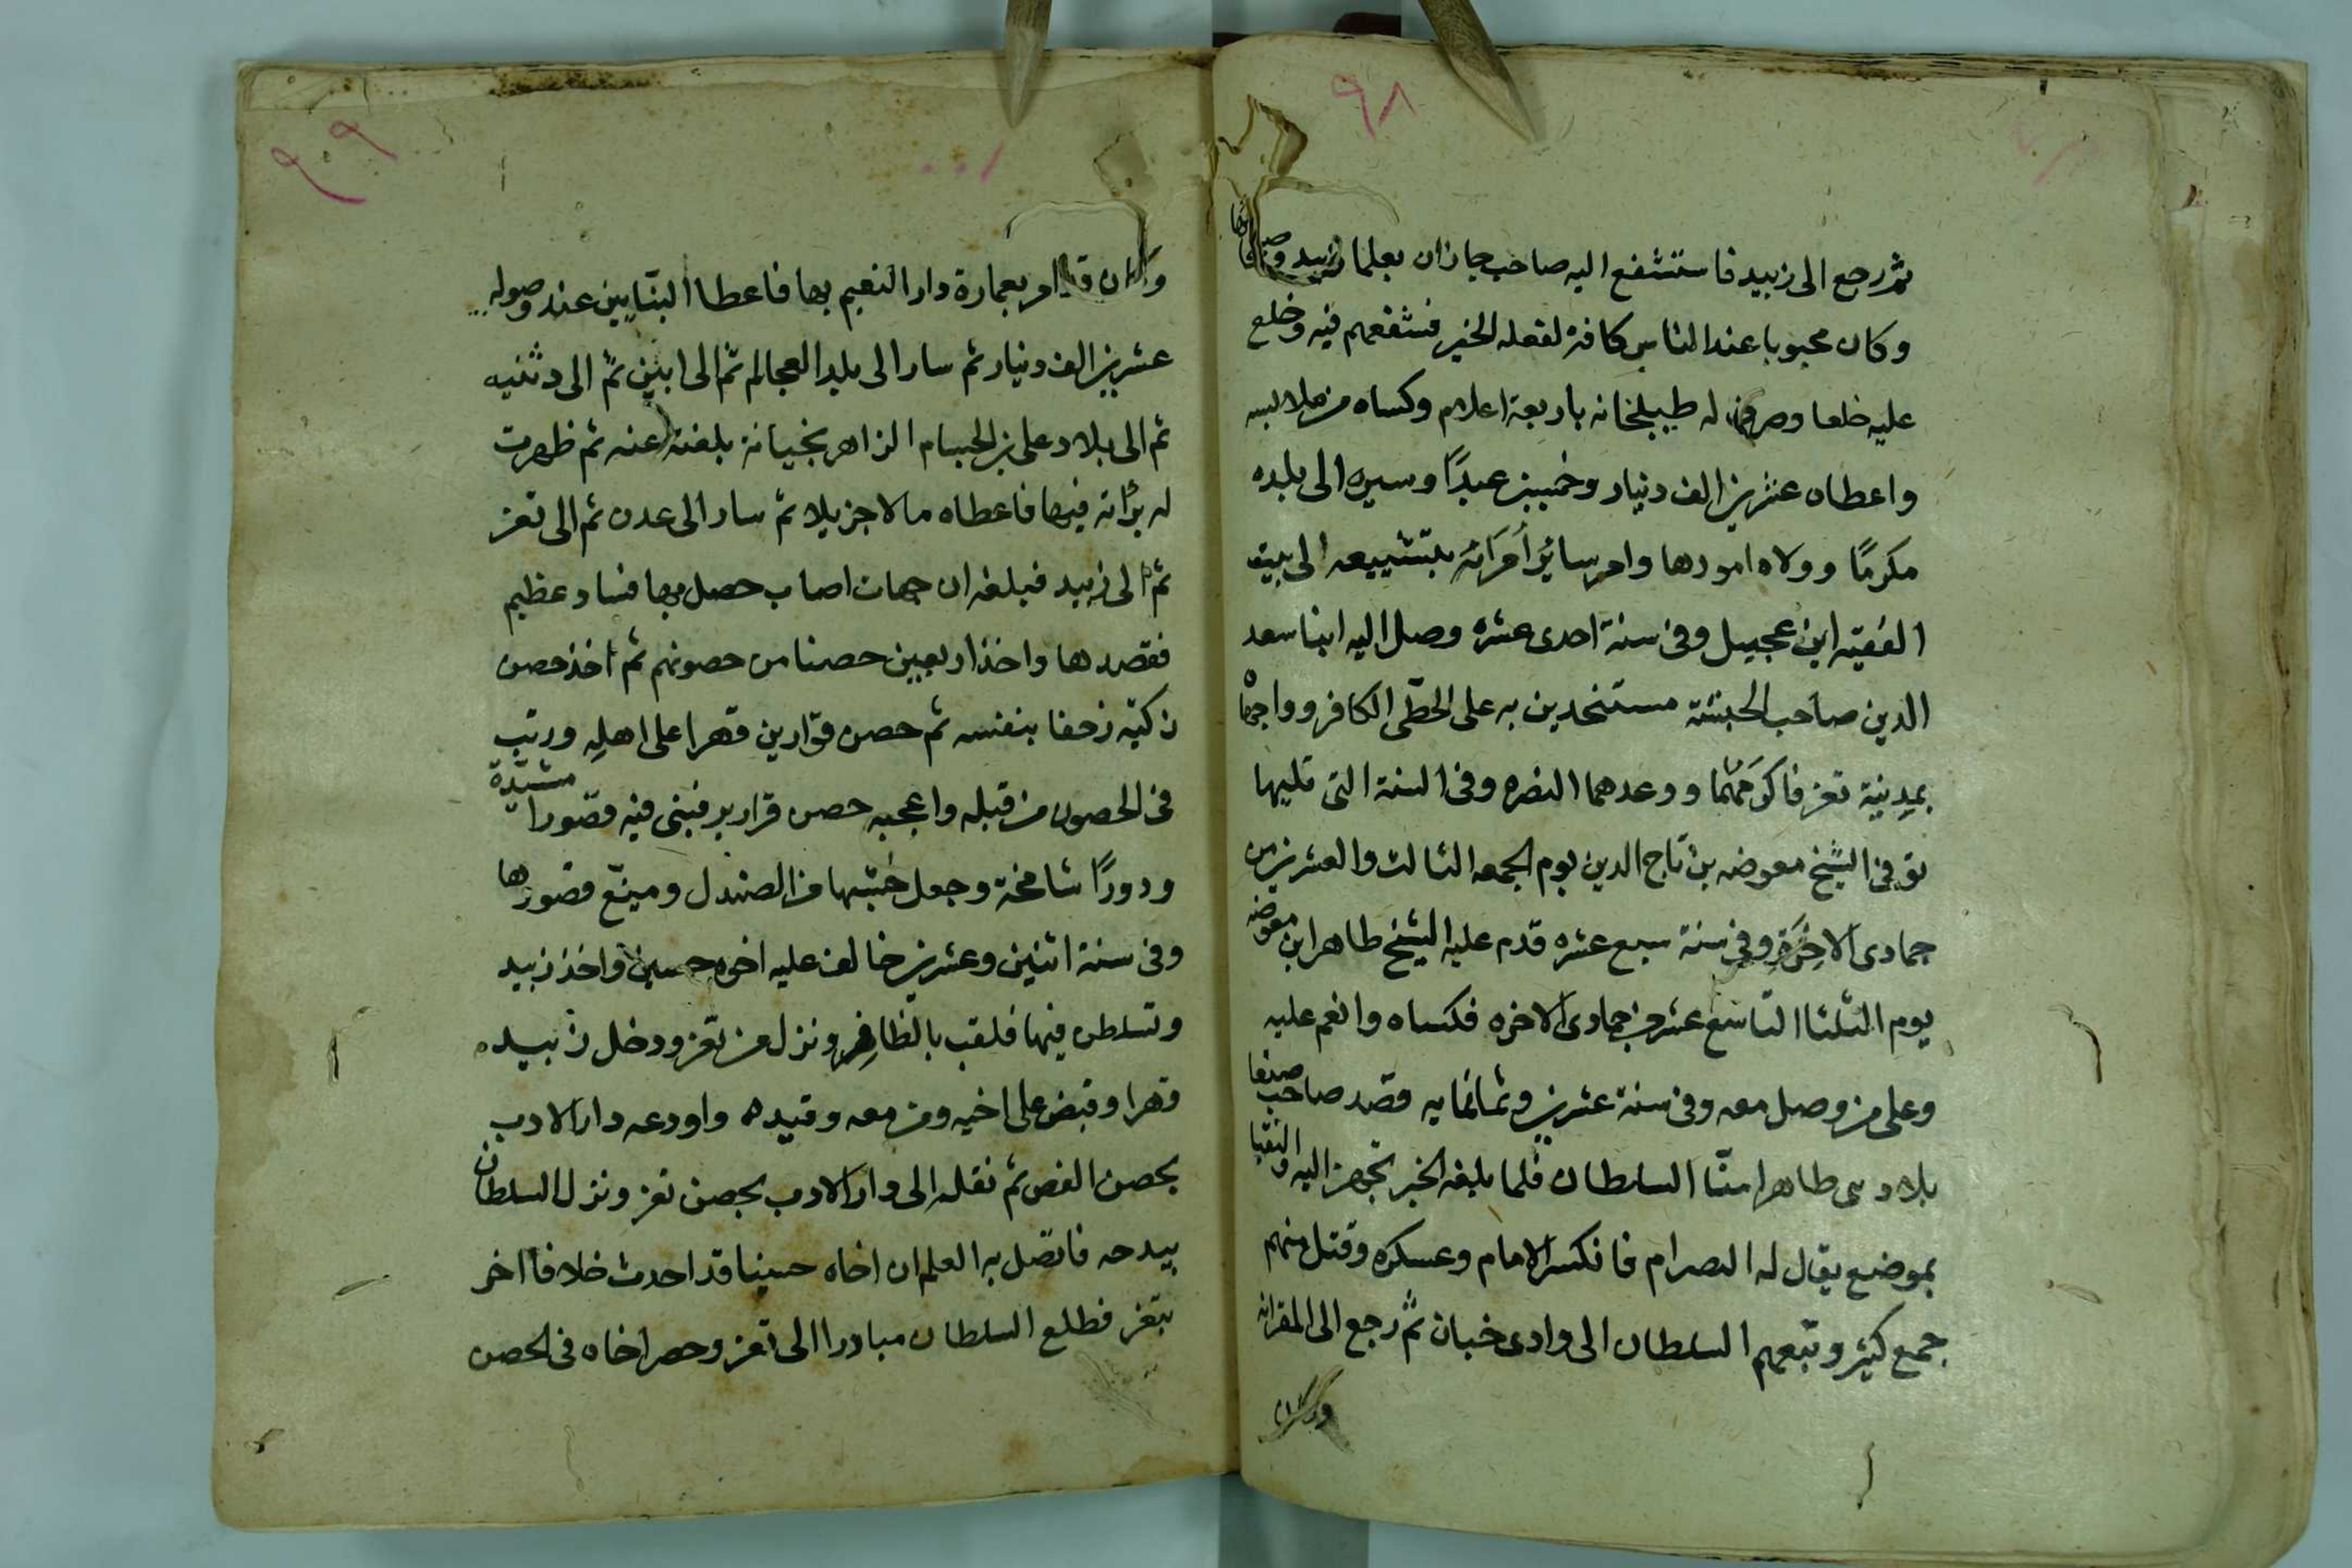 ٩٨
ثم رجع الى زبيد فاستشفع اليه صاحب جازان بعلما زبيد
وكان محبوبا عند الناس كافة لفعله الخير فشفعهم فيه وخلع
عليه خلعا وصرف له طبلخانه باربعة اعلام وكساه من ملابسه
واعطاه عشرين الف دنيار وخمسين عبدًا وسيره الى بلده
مكرمًا وولاه امورها وامر سائر أمرائه بتشييعه الى بيت
الفقيه ابن عجيل وفى سنة احدى عشره وصل اليه ابنا سعد
الدين صاحب الحبشة مستنجدين به على الحطّى الكافر وواجهاه
بمدينة تعز فاكرمهما ووعدهما النصره وفى السنة التى تليها
توفى الشيخ معوضه بن تاج الدين يوم الجمعه الثالث والعشرين من
جمادى الاخرة وفى سنة سبع عشره قدم عليه الشيخ طاهر ابن معوضه
يوم الثلثا التاسع عشر من جمادى الاخره فكساه وانعم عليه
وعلى من وصل معه وفى سنة عشرين وثمانمايه قصد صاحب صنعا
بلاد بنى طاهر امنّا السلطان فلما بلغه الخبر تجهز اليه والتقيا
بموضع يقال له الصرام فانكسر الامام وعسكره وقتل منهم
جمع كثير وتبعهم السلطان الى وادى خبان ثم رجع الى المقرانه
وكان
٩٩
وكان قد امر بعمارة دار النعيم بها فاعطا البنّايين عند وصوله
عشرين الف دنيار ثم سار الى بلد العجالم ثم الى ابين ثم الى دثنيه
ثم الى بلاد على بن الحسام الزاهر بخيانة بلغته عنه ثم ظهرت
له برأته فيها فاعطاه مالا جزيلا ثم سار الى عدن ثم الى تعز
ثم الى زبيد فبلغه ان جهات اصاب حصل بها فساد عظيم
فقصدها واخذ اربعين حصنا من حصونهم ثم اخذ حصن
زحفا بنفسه ثم حصن قوارين قهرا على اهله ورتب
فى الحصون من قبله واعجبه حصن فبنى فيه قصورا مشيّدة
ودورًا شامخة وجعل خشبها من الصندل ومينّع قصورها
وفى سنة اثنين وعشرين خالف عليه اخوه حسين واخذ زبيد
وتسلطن فيها فلقب بالظافر ونزل من تعز ودخل زبيده
قهرا وقبض على اخيه ومن معه وقيده واودعه دار الادب
بحصن الفص ثم نقله الى دار الادب بحصن تعز ونزل السلطان
بيدحه فاتصل به العلم ان اخاه حسينا قد احدث خلافا اخر
بتعز فطلع السلطان مبادرا الى تعز وحصر اخاه فى الحصن